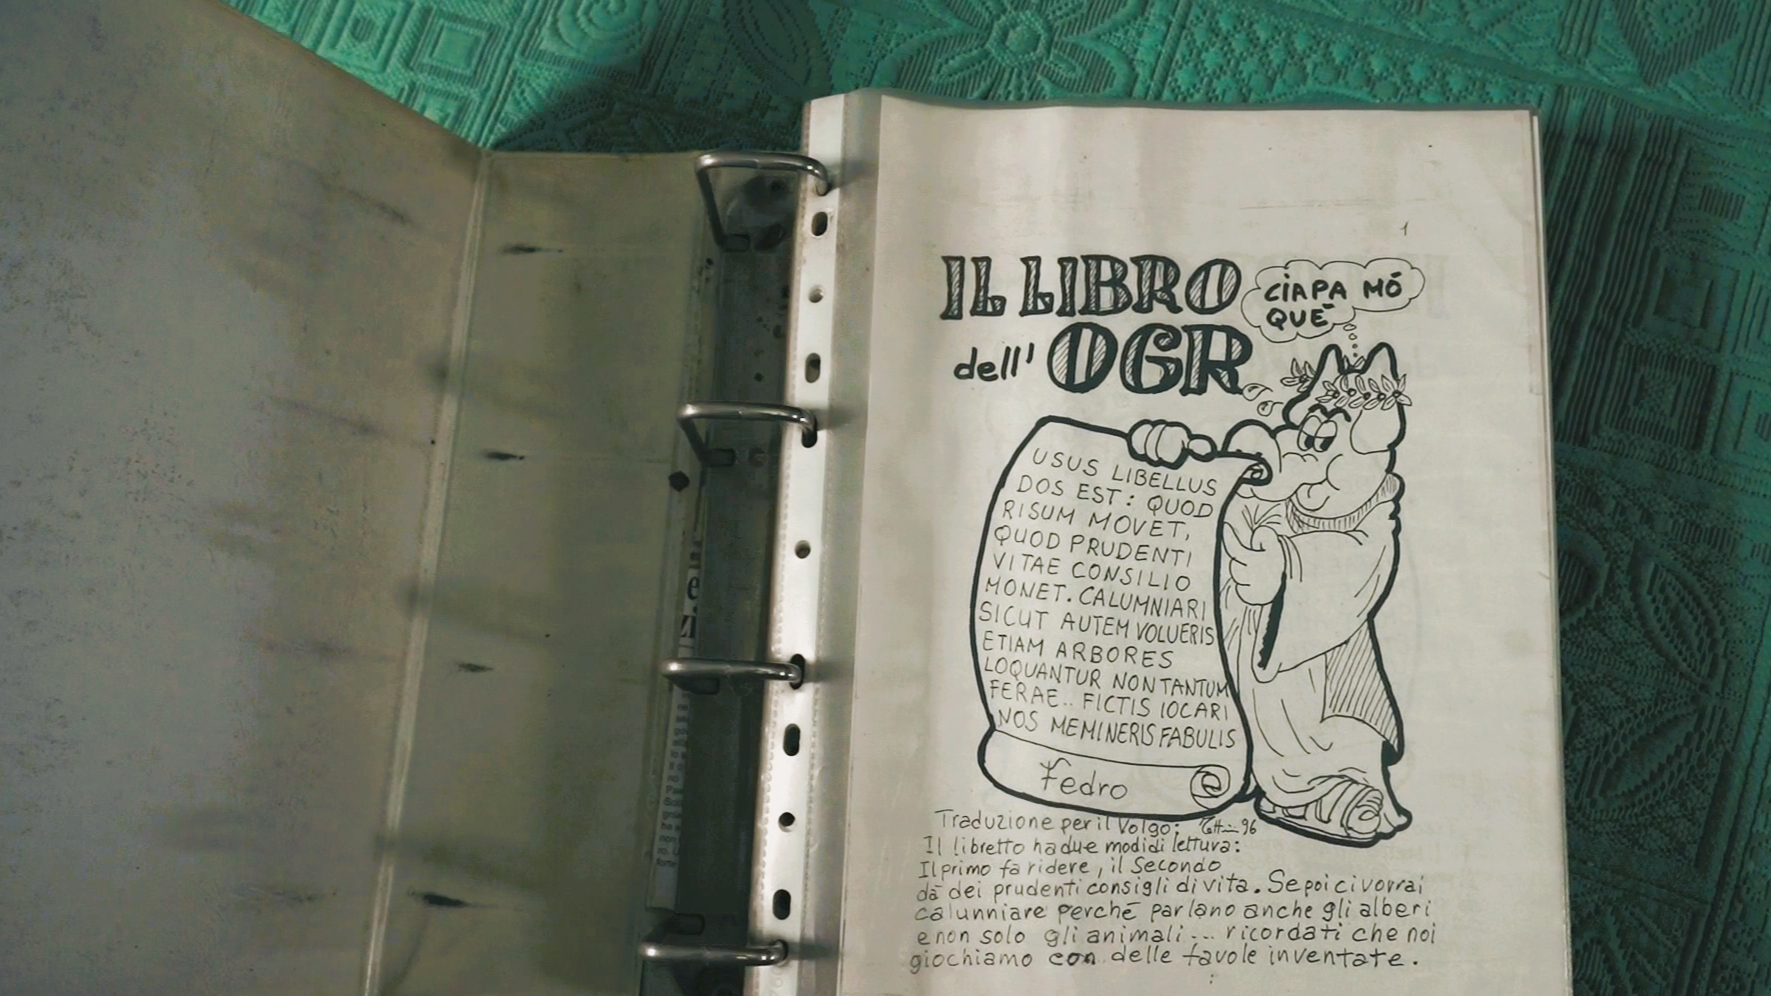 1
IL LIBRO
dell' OGR
CIAPA MÓ
QUE
USUS LIBELLUS
DOS EST: QUOD
RISUM MOVET,
QUOD PRUDENTI
VITAE CONSILIO
MONET. CALUMNIARI
SICUT AUTEM VOLUERIS
ETIAM ARBORES
LOQUANTUR NON TANTUM
FERAE.. FICTIS IOCARI
NOS MEMINERIS FABULIS
Fedro
Traduzione per il Volgo: 96
Il libretto ha due modi di lettura:
Il primo fa ridere, il Secondo
dà dei prudenti consigli di vita. Se poi ci vorrai
calunniare perché parlano anche gli alberi
e non solo gli animali... ricordati che noi
giochiamo con delle favole inventate.